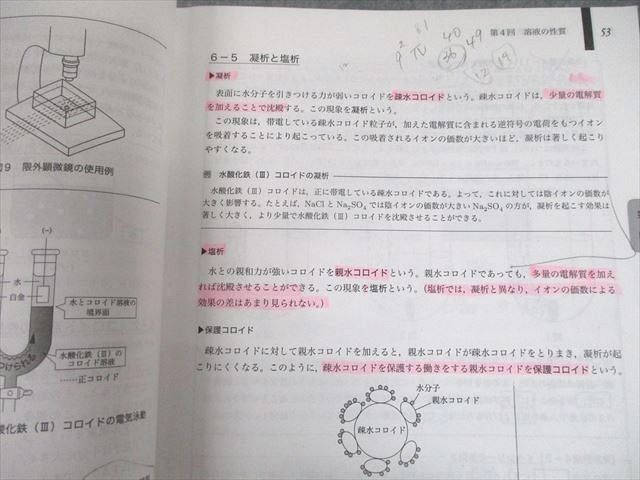 第4回 溶液の性質 53
6-5 凝析と塩析
▶凝析
表面に水分子を引きつける力が弱いコロイドを疎水コロイドという。疎水コロイドは，少量の電解質
を加えることで沈殿する。この現象を凝析という。
この現象は，帯電している疎水コロイド粒子が，加えた電解質に含まれる逆符号の電荷をもつイオン
を吸着することにより起こっている。この吸着されるイオンの価数が大きいほど，凝析は著しく起こり
やすくなる。
例 水酸化鉄（Ⅲ）コロイドの凝析
水酸化鉄（Ⅲ）コロイドは，正に帯電している疎水コロイドである。よって，これに対しては陰イオンの価数が
大きく影響する。たとえば，NaClとNa₂SO₄では陰イオンの価数が大きいNa₂SO₄の方が，凝析を起こす効果は
著しく大きく，より少量で水酸化鉄（Ⅲ）コロイドを沈殿させることができる。
▶塩析
水との親和力が強いコロイドを親水コロイドという。親水コロイドであっても，多量の電解質を加え
れば沈殿させることができる。この現象を塩析という。（塩析では，凝析と異なり，イオンの価数による
効果の差はあまり見られない。）
▶保護コロイド
疎水コロイドに対して親水コロイドを加えると，親水コロイドが疎水コロイドをとりまき，凝析が起
こりにくくなる。このように，疎水コロイドを保護する働きをする親水コロイドを保護コロイドという。
水分子
親水コロイド
疎水コロイド
図9 限外顕微鏡の使用例
(-)
水
白金
水とコロイド溶液の
境界面
水酸化鉄（Ⅲ）の
コロイド溶液
……正コロイド
酸化鉄（Ⅲ）コロイドの電気泳動
40
49
36
12
14